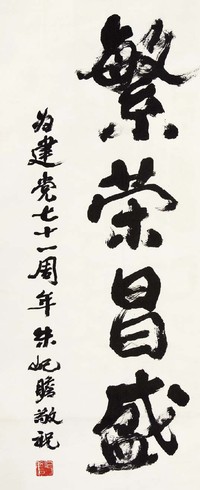 繁荣昌盛
为建党七十一周年朱屺瞻敬祝